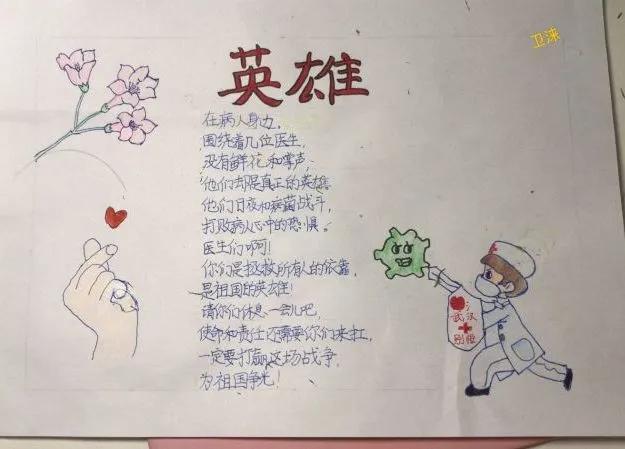 卫涞
英雄
在病人身边，
围绕着几位医生，
没有鲜花和掌声，
他们却是真正的英雄
他们日夜和病菌战斗，
打败病人心中的恐惧。
医生们啊！
你们是拯救所有人的依靠，
是祖国的英雄！
请你们休息一会儿吧，
使命和责任还需要你们来扛，
一定要打赢这场战争，
为祖国争光！
武汉
别怕